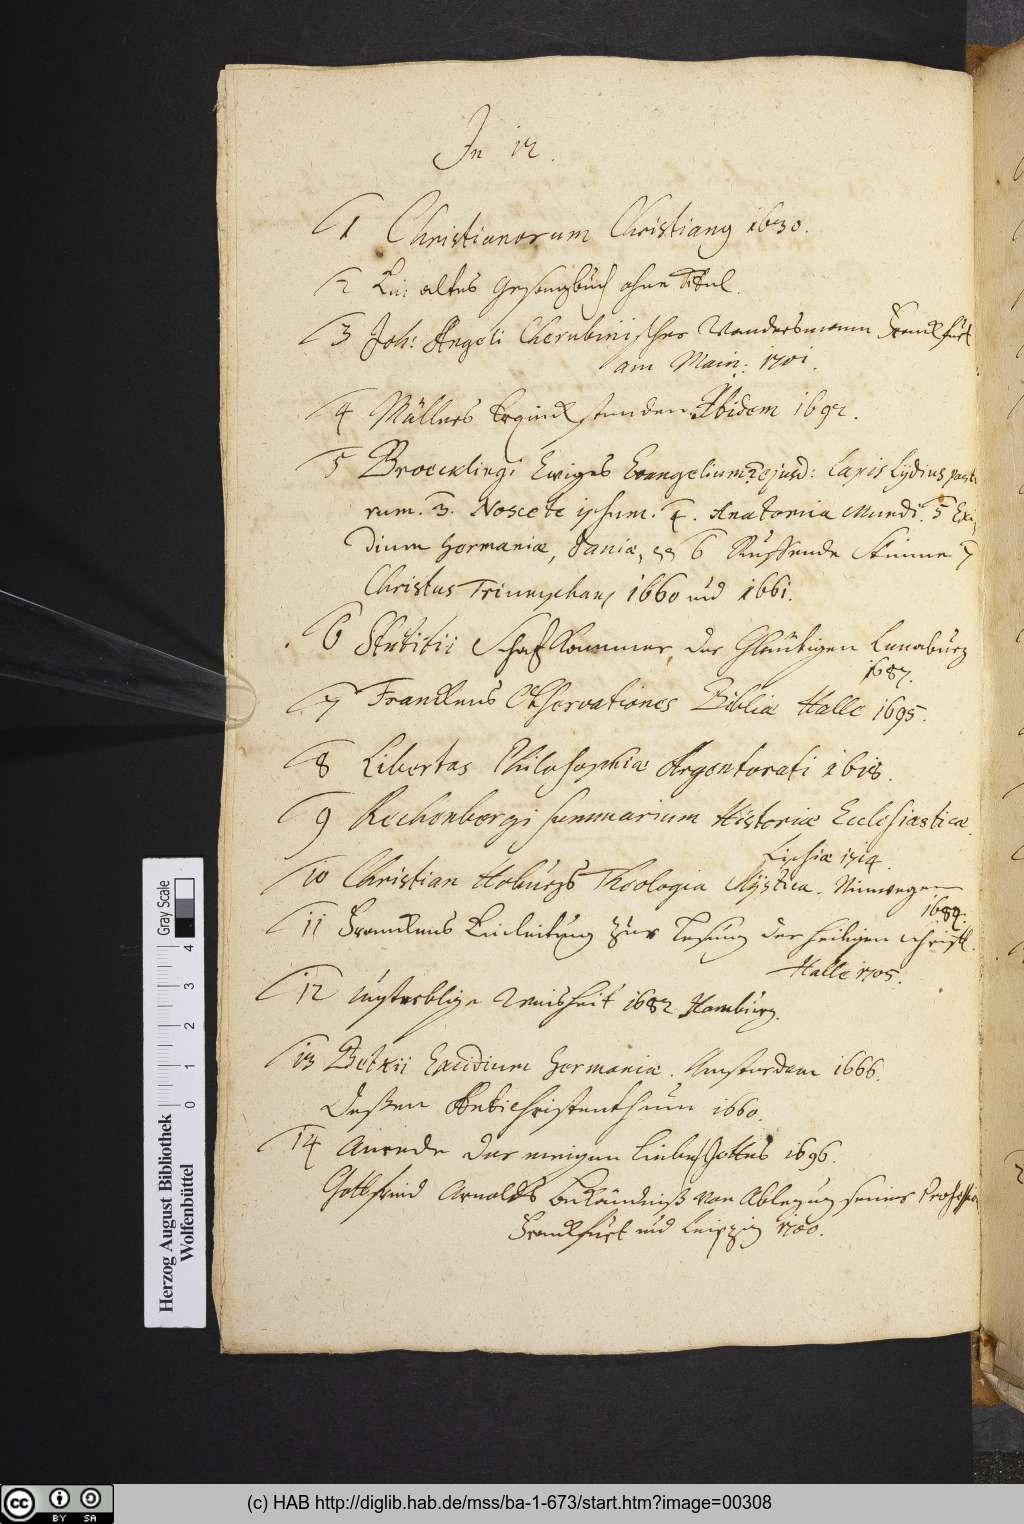 In 12.
1 Christianorum Christiany 1630.
2 Ein altes Gesangbuch ohne Titul.
3 Joh: Angeli Cherubinischer Wandersmann Franckfurt
am Main: 1701.
4 Müllers Erquickstunden Ibidem 1692.
5 Broecklingi Ewiges Evangelium 2 ejusd: Lapis Lydius past
rum. 3. Noscete ipsum. 4. Anatomia Mundi. 5 Exi
dium Germaniæ, Daniæ, 6 Ruffende Stimme 7
Christus Triumphans 1660 und 1661.
6 Statitii Schatzkammer, der Gläubigen Lunæburg
1687.
7 Franckens Observationes Biblicæ Halle 1695.
8 Libertas Philosophiæ Argentorati 1618.
9 Rechenbergi summarium Historiæ Ecclesiasticæ.
Lipsiæ 1714.
10 Christian Hoburgs Theologia Mystica. Nimwegen
1684.
11 Franckens Einleitung zur Lesung der heiligen schrifft.
Halle 1705.
12 unsterbliche Weisheit 1682 Hamburg.
13 Betkii Excidium Germaniæ. Amsterdam 1666.
Deßen Antichristenthum 1660.
14 Anrede der ewigen Liebe Gottes 1696.
Gottfried Arnolds Bekäntniß von Ablegung seiner Profession
Franckfurt und Leipzig 1700.
Herzog August Bibliothek
Wolfenbüttel
0 1 2 3 4
Gray Scale
cc BY SA
(c) HAB http://diglib.hab.de/mss/ba-1-673/start.htm?image=00308